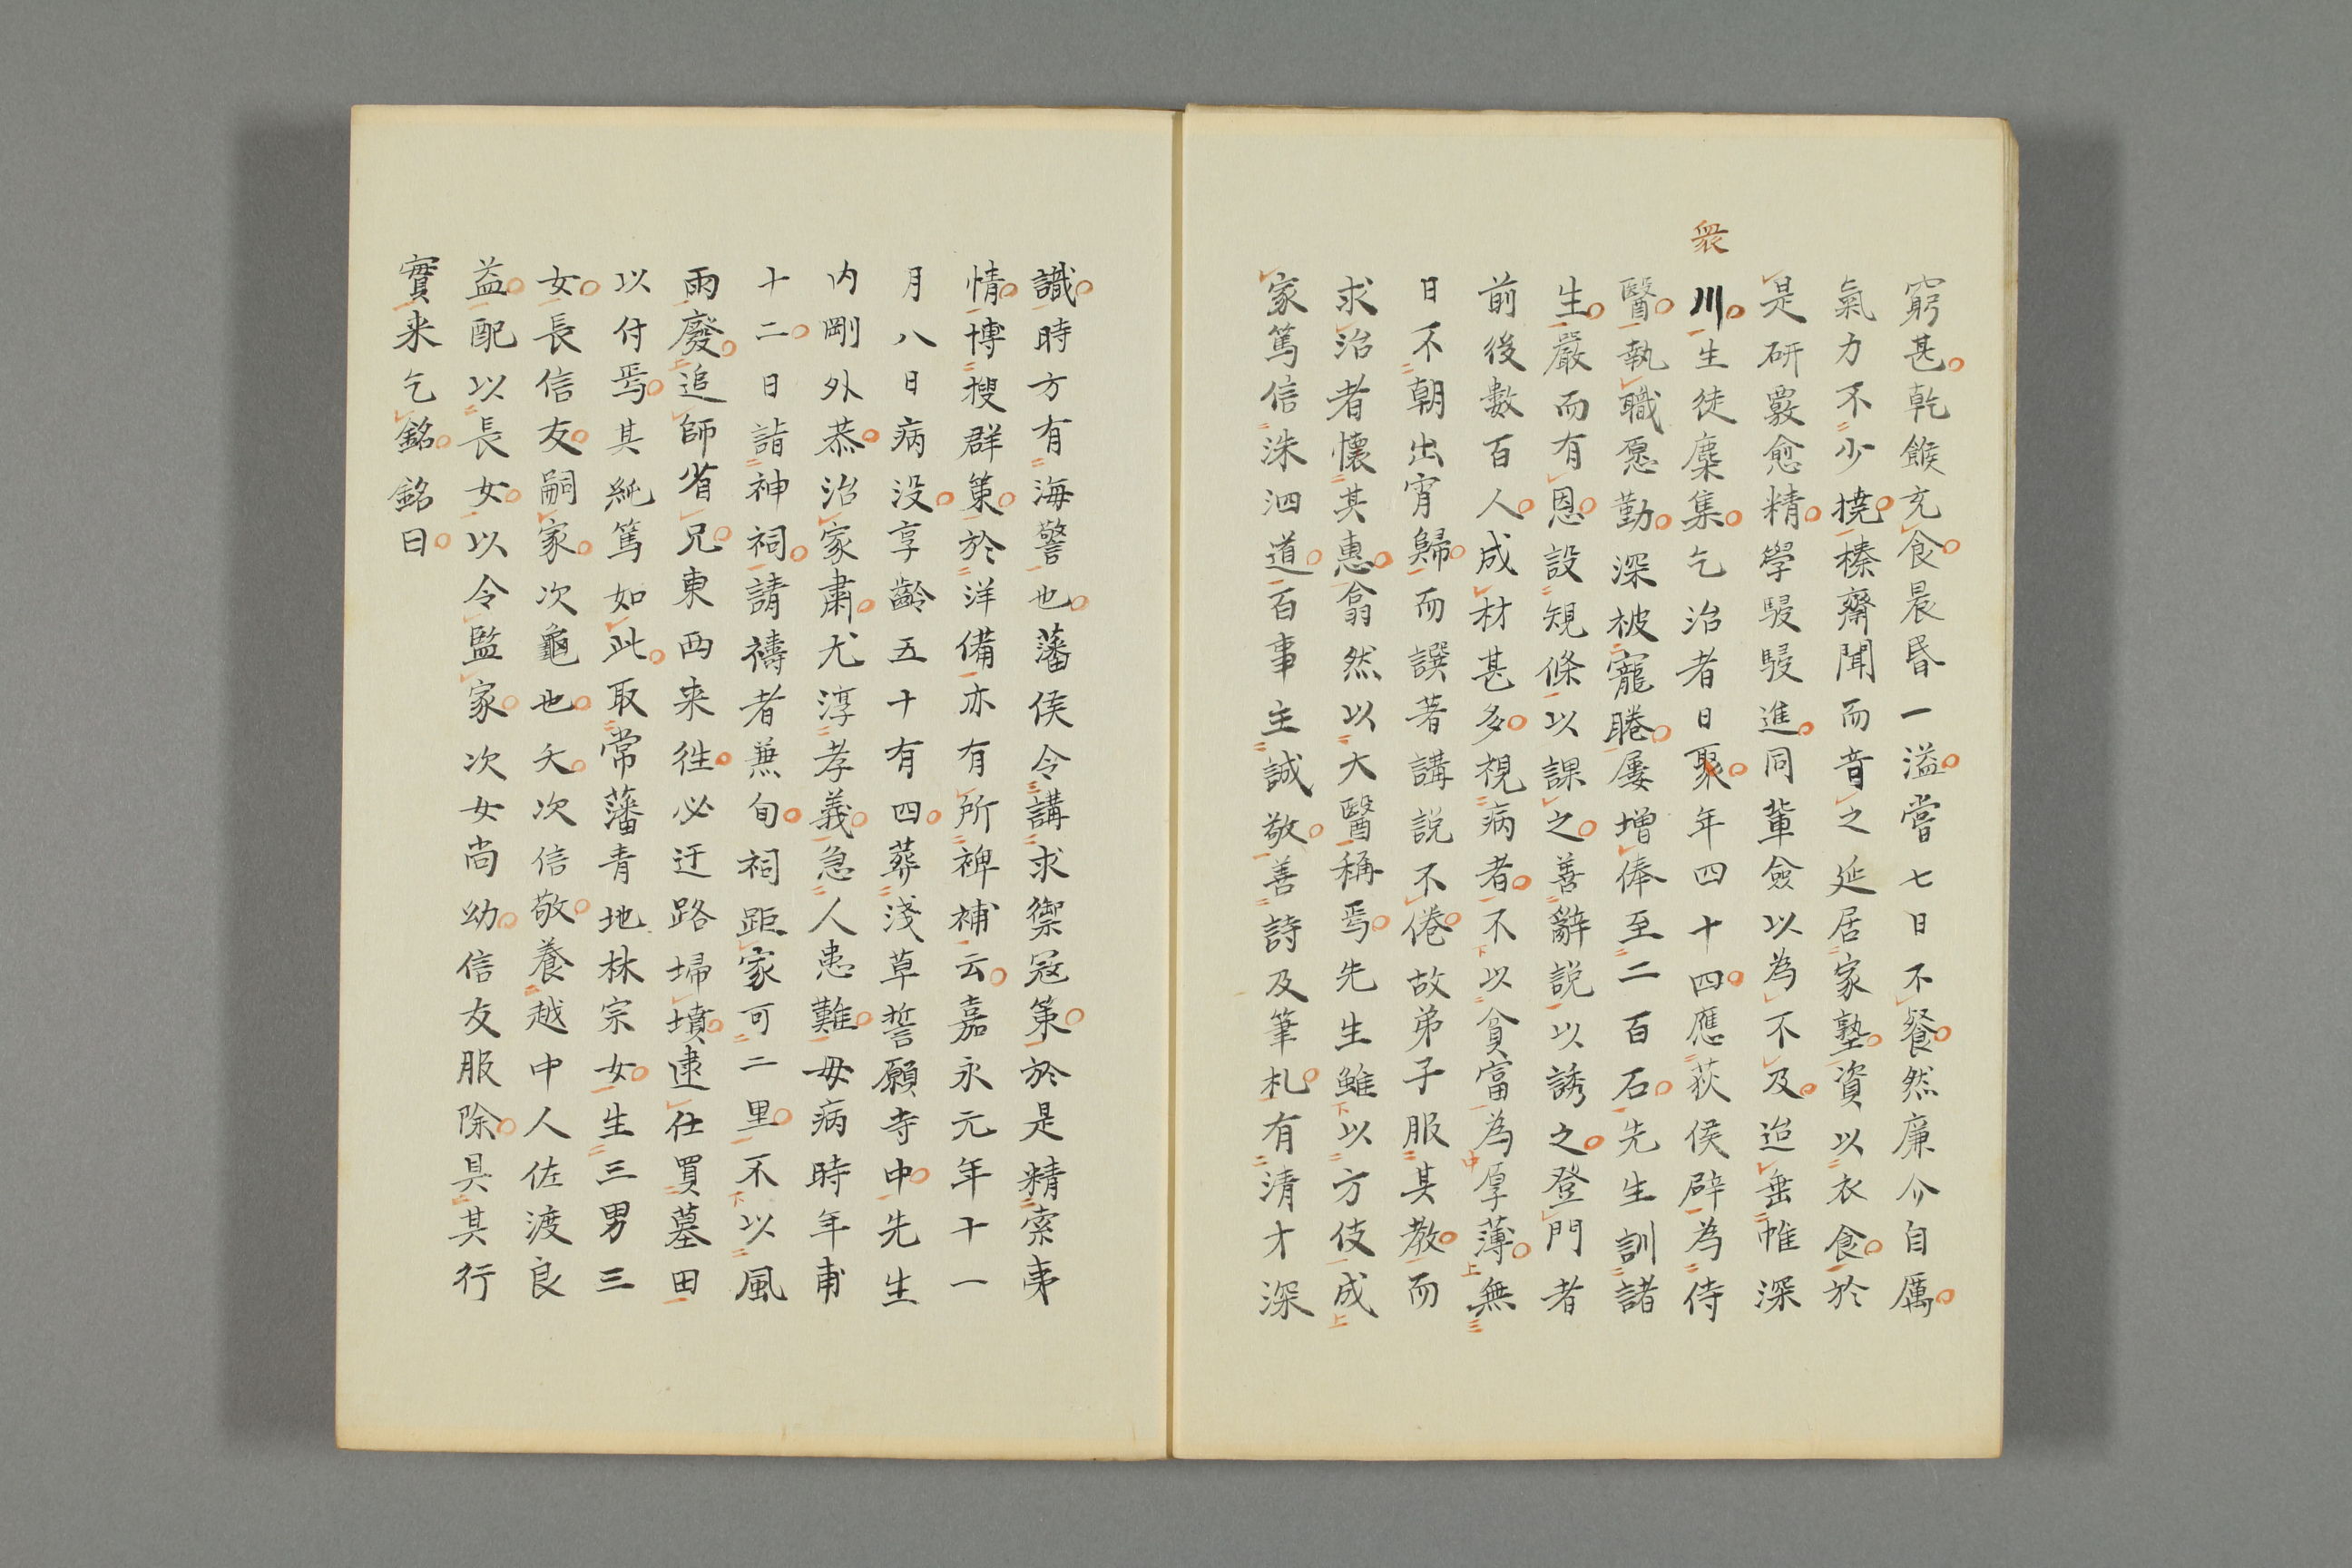 窮甚乾餱充食晨昏一溢嘗七日不餐然廉介自厲
氣力不少撓榛齋聞而音之延居家塾資以衣食於
是研覈愈精學駸駸進同輩僉以為不及迨垂帷深
衆
川生徒麇集乞治者日聚年四十四應荻侯辟為侍
醫執職愿勤深被寵睠屢增俸至二百石先生訓諸
生嚴而有恩設規條以課之善辭説以誘之登門者
前後數百人成材甚多視病者不以貧富為厚薄無
日不朝出宵歸而譔著講説不倦故弟子服其教而
求治者懷其惠翕然以大醫稱焉先生雖以方伎成
家篤信洙泗道百事主誠敬善詩及筆札有清才深
識時方有海警也藩侯令講求禦冦策於是精索夷
情博搜群策於洋備亦有所裨補云嘉永元年十一
月八日病没享齡五十有四葬淺草誓願寺中先生
内剛外恭治家肅尤淳孝義急人患難母病時年甫
十二日詣神祠請禱者兼旬祠距家可二里不以風
雨廢追師省兄東西来徃必迂路埽墳逮仕買墓田
以付焉其純篤如此取常藩青地林宗女生三男三
女長信友嗣家次龜也夭次信敬養越中人佐渡良
益配以長女以令監家次女尚幼信友服除具其行
實来乞銘銘曰